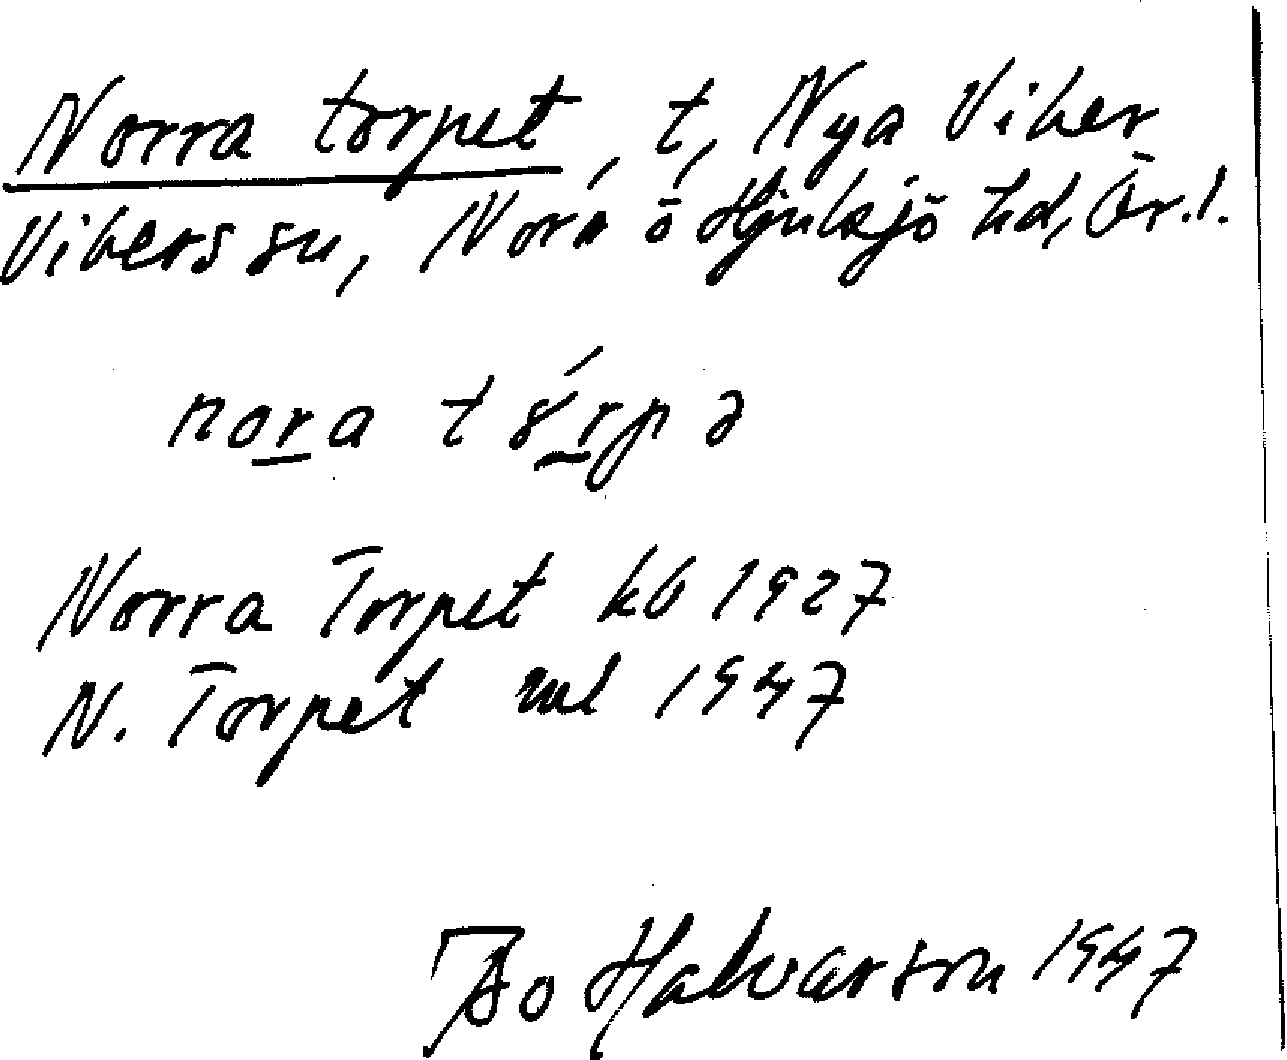 Norra torpet, t, Nya Viker
Vikers sn, Nora ō Hjulsjö hd, Ör.l.
nora tórpə
Norra Torpet kb 1927
N. Torpet ml 1947
Bo Halvarson 1947